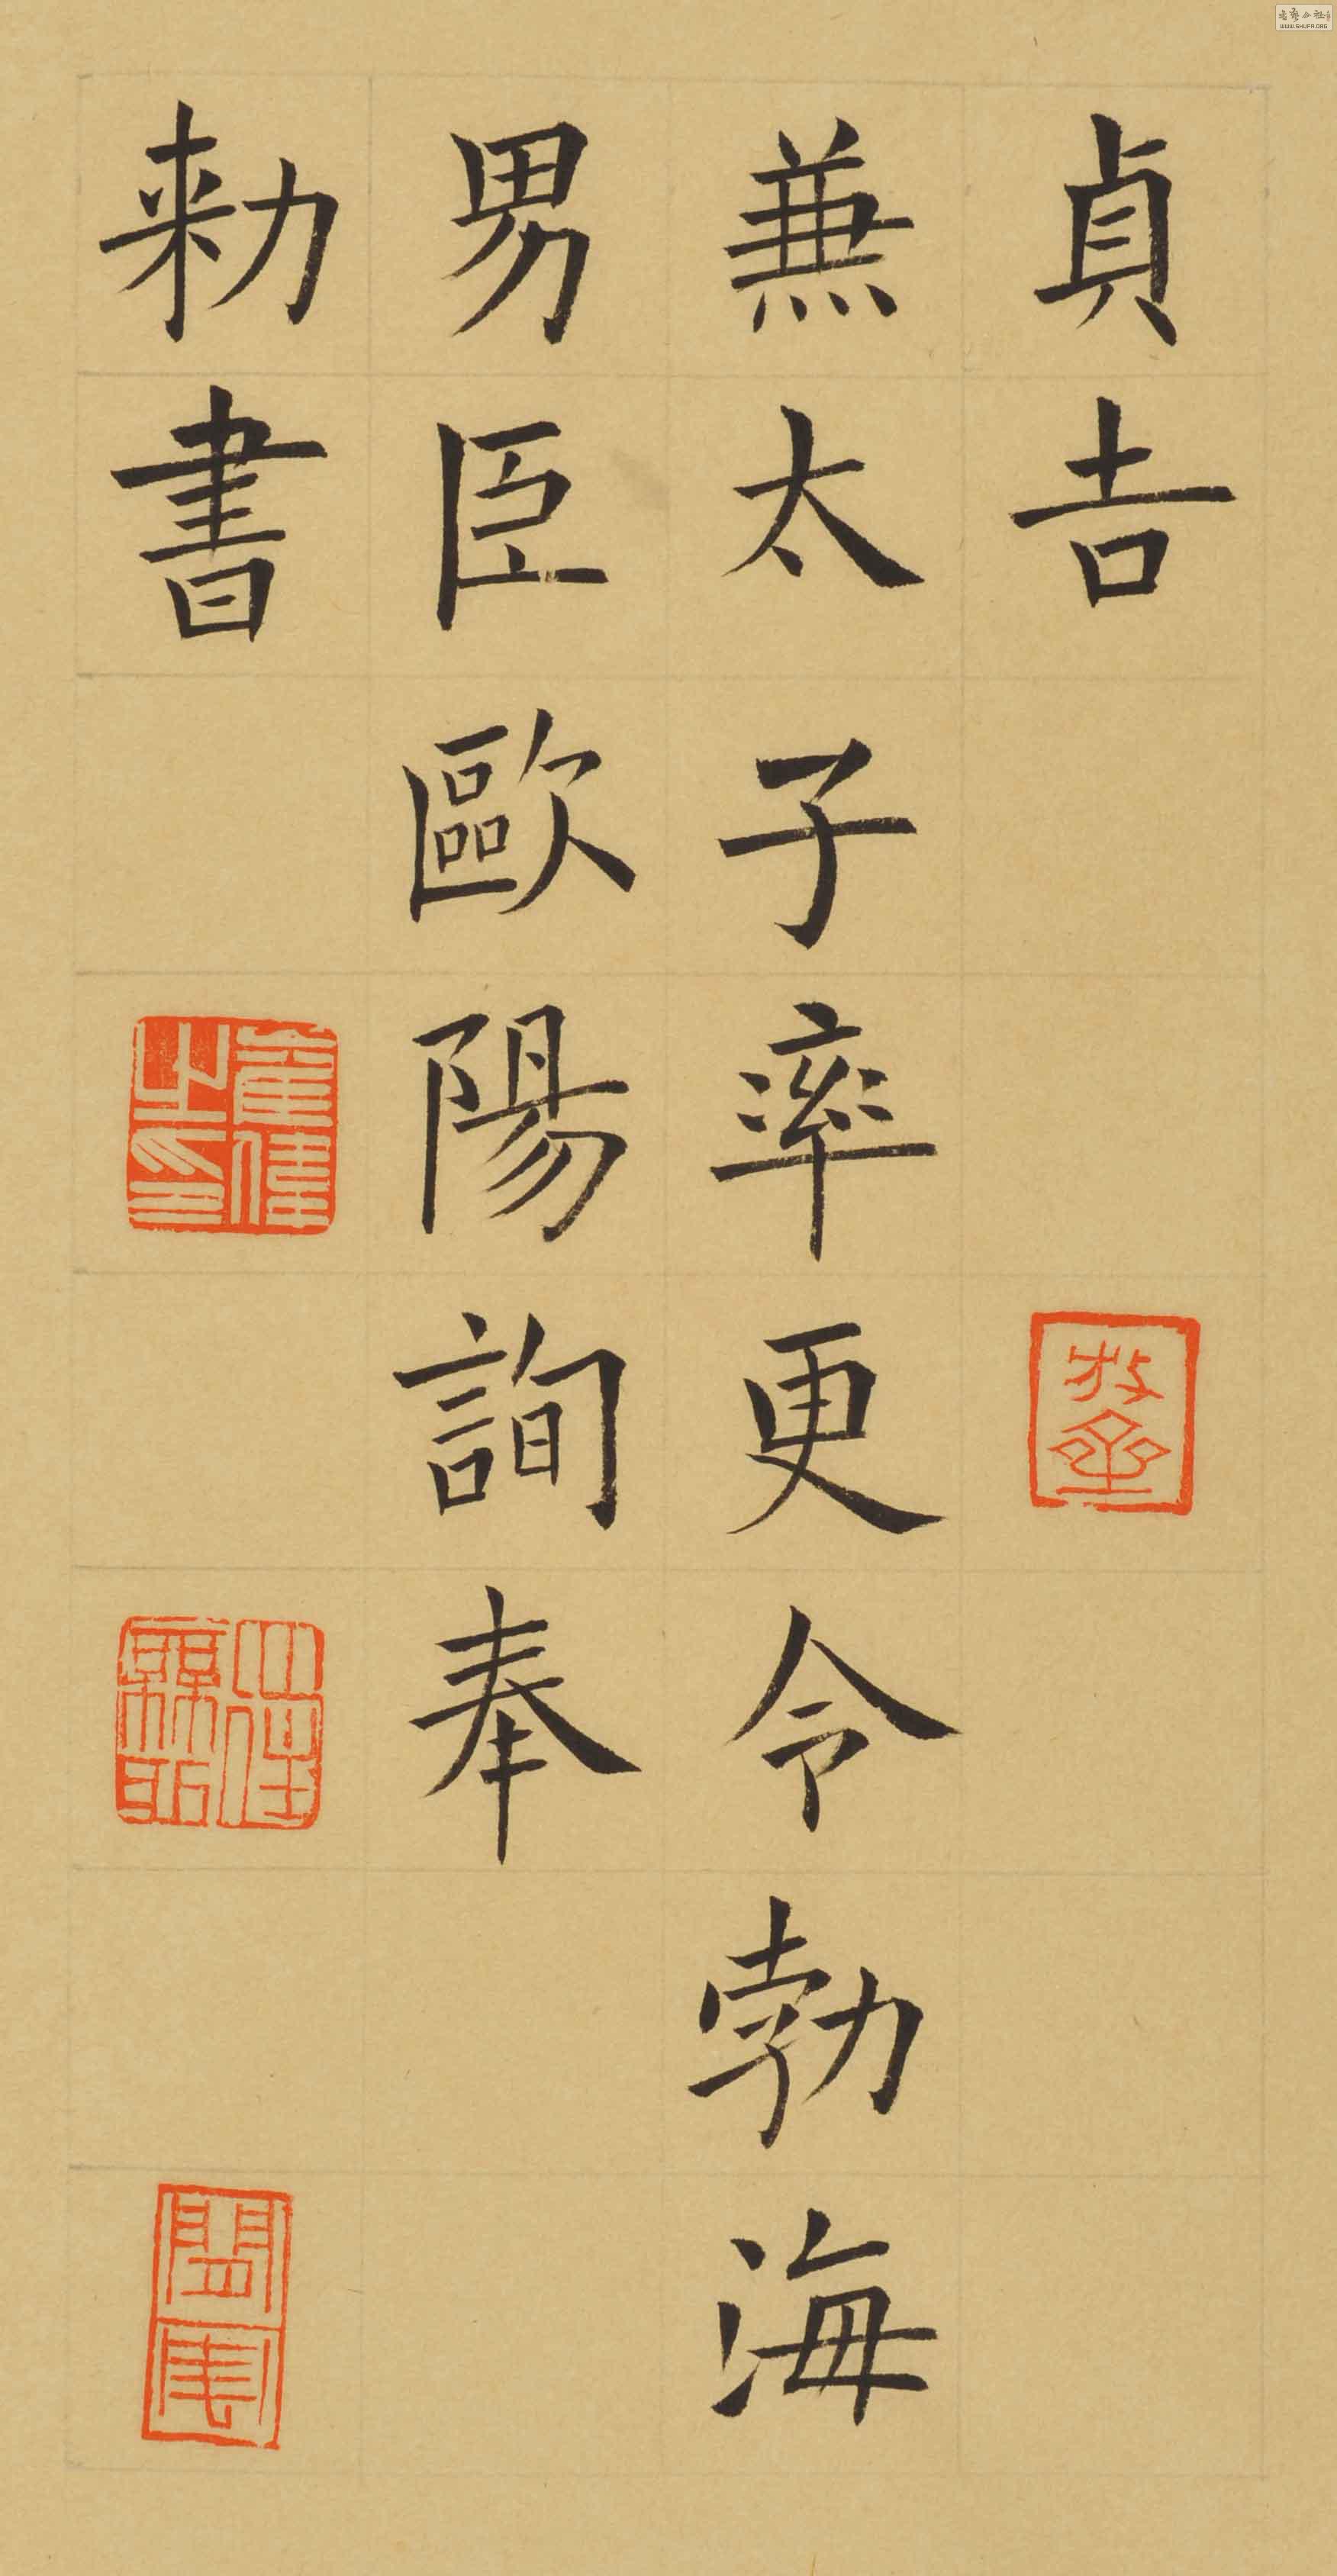 貞吉
兼太子率更令勃海
男臣歐陽詢奉
勑書
WWW.SHUFA.ORG